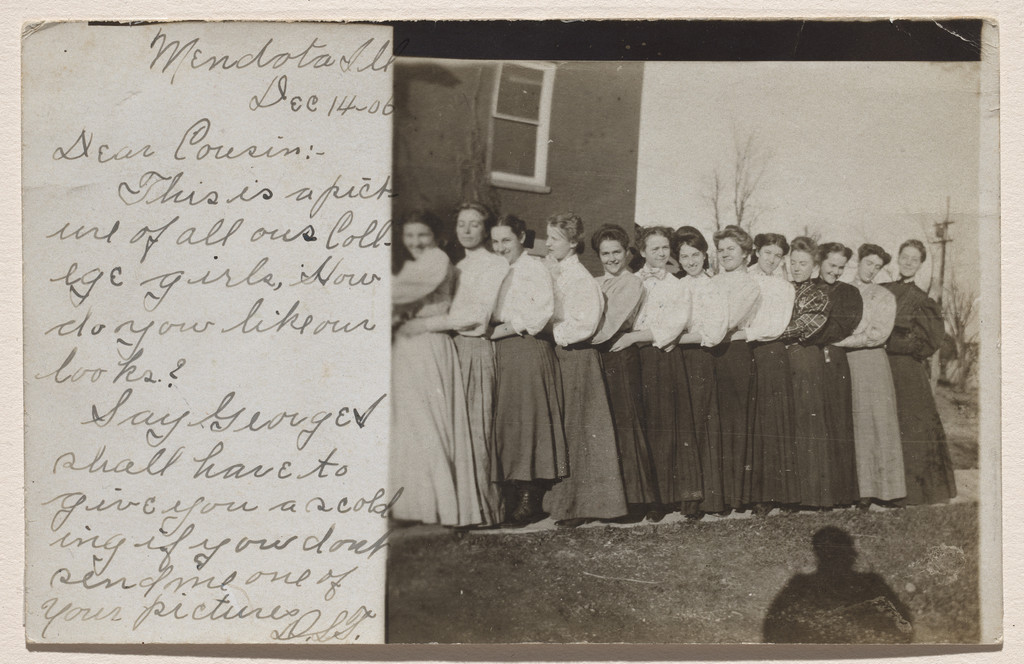 Mendota Ill
Dec 14-06
Dear Cousin:-
This is a pict
ure of all our Coll-
ege girls, How
do you like our
looks?
Say George I
shall have to
give you a scold
ing if you dont
send me one of
your pictures